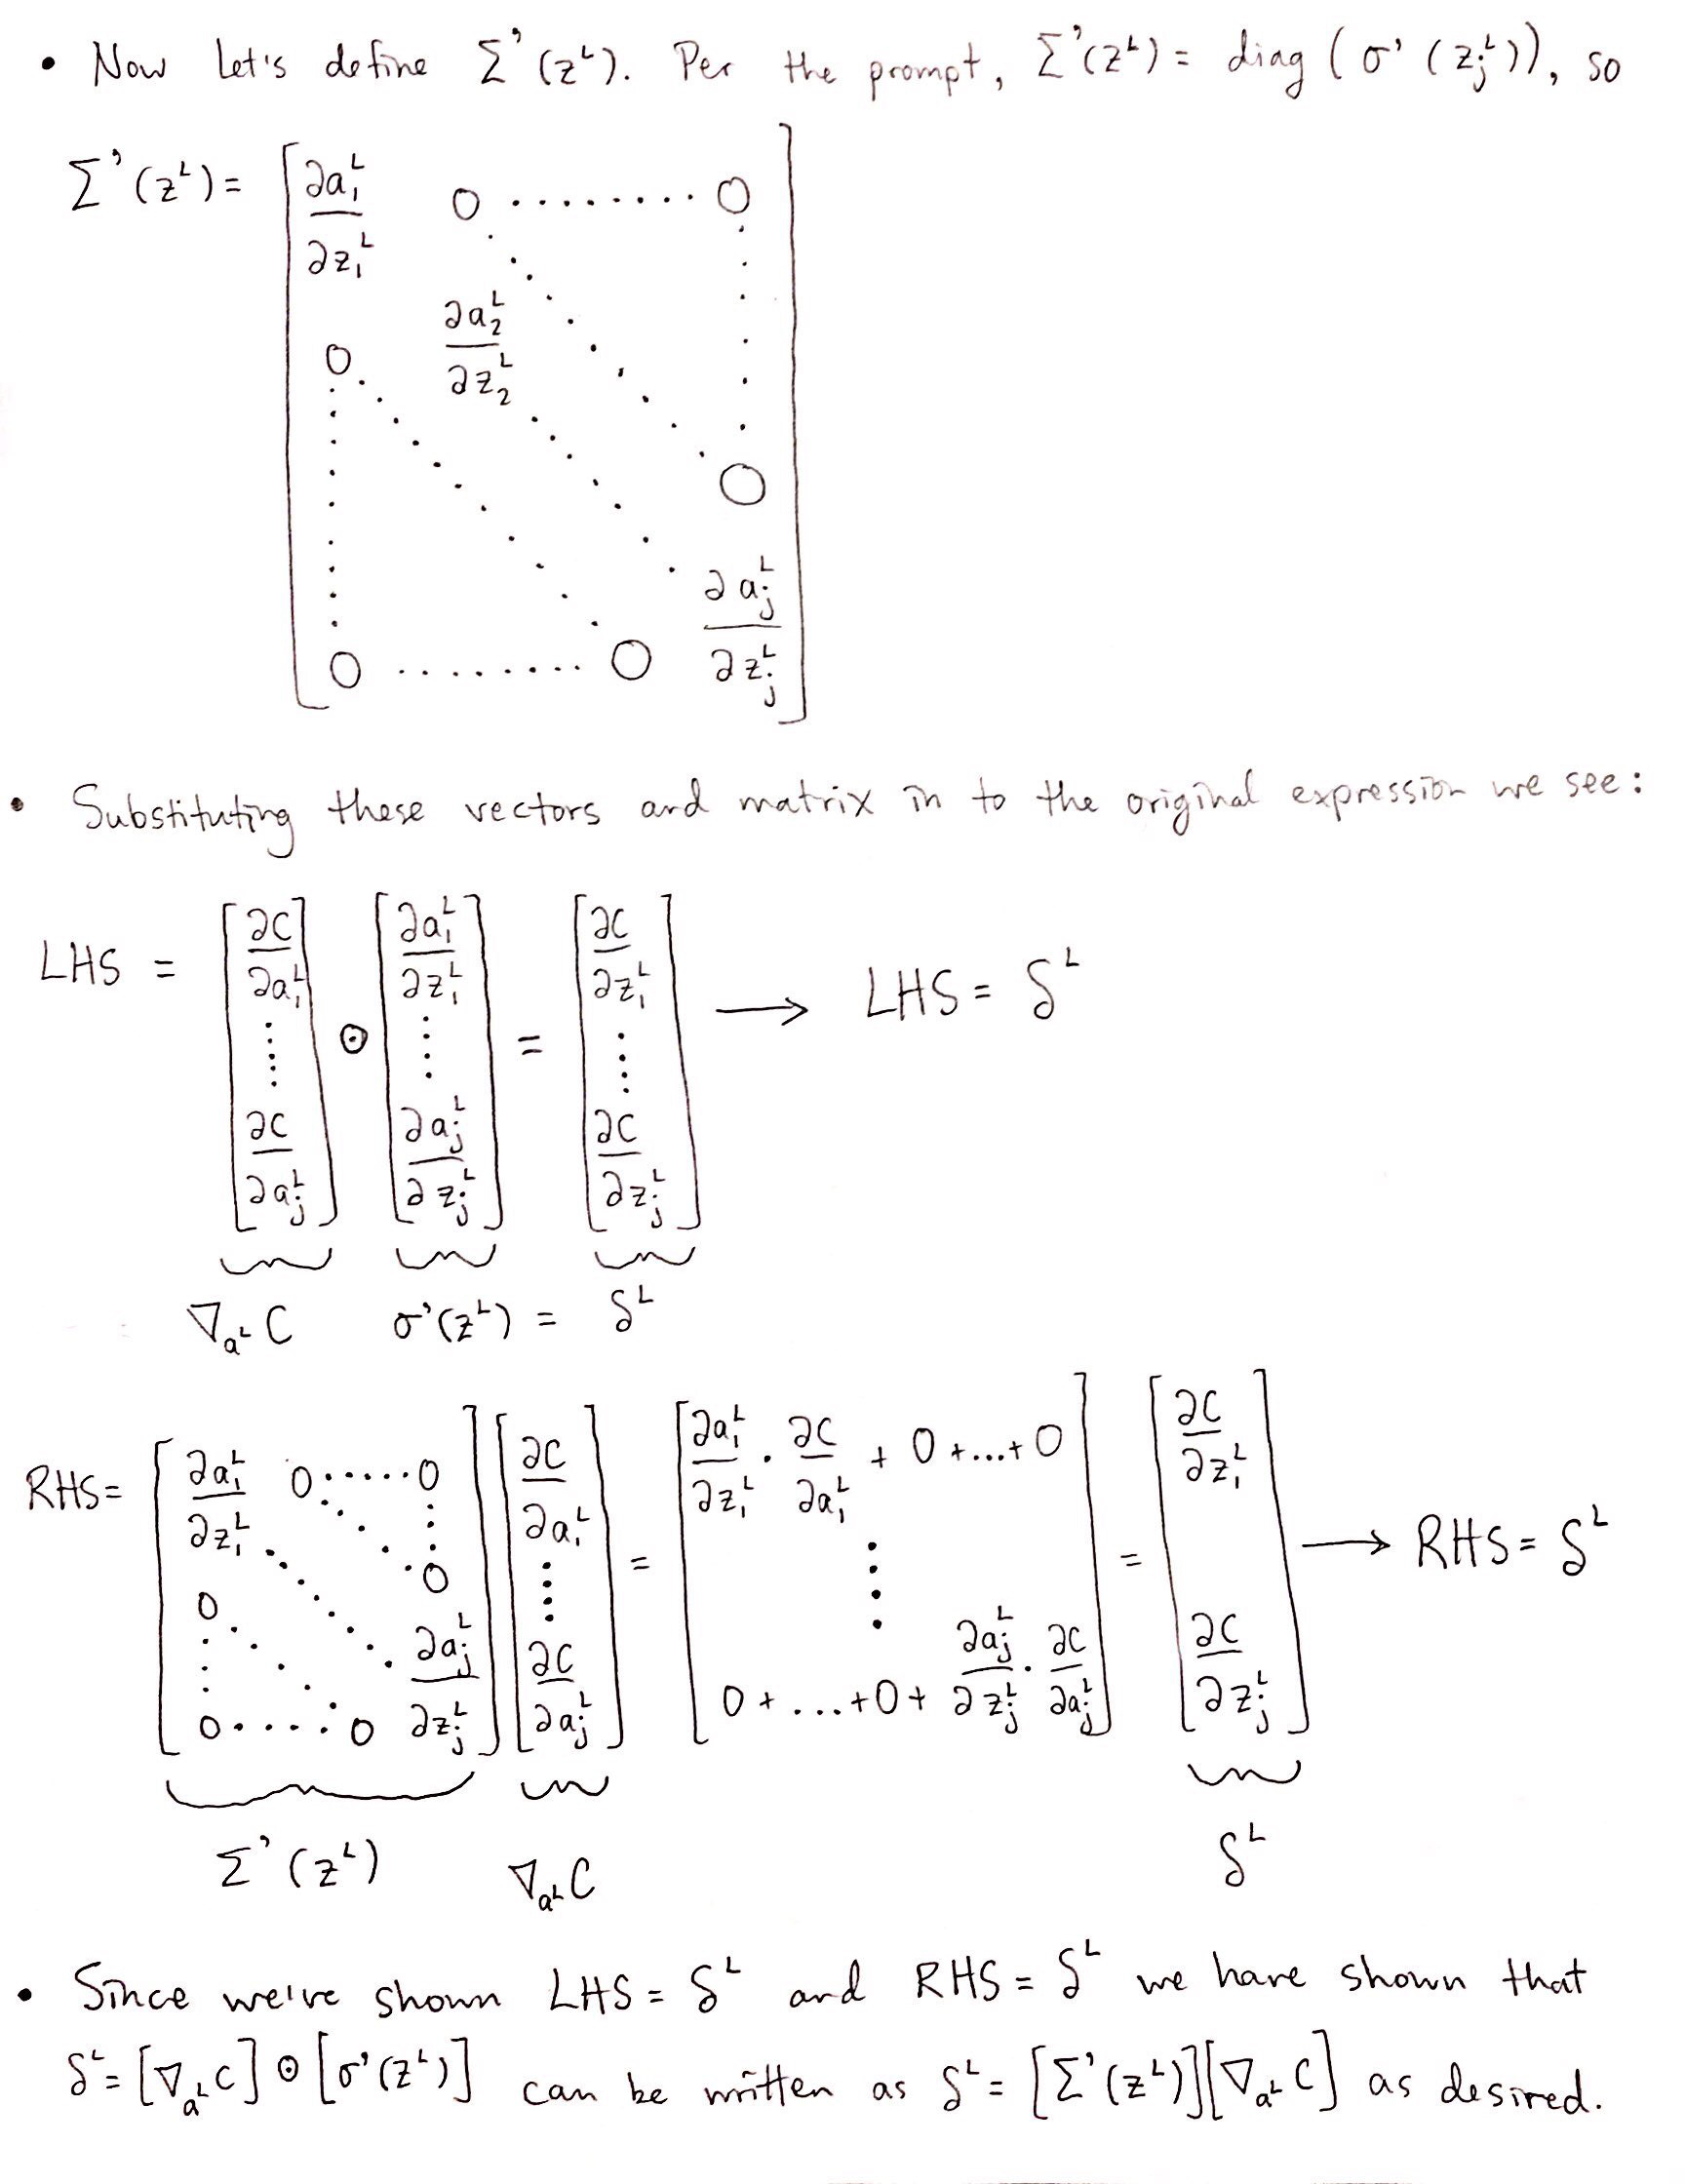 • Now Let's define Σ'(z^L). Per the prompt, Σ'(z^L) = diag(σ'(z_j^L)), so
Σ'(z^L) = [ ∂a_1^L/∂z_1^L 0 ........ 0
0 ∂a_2^L/∂z_2^L
0
0 ......... 0 ∂a_j^L/∂z_j^L ]
• Substituting these vectors and matrix in to the original expression we see:
LHS = [ ∂C/∂a_1^L ..... ∂C/∂a_j^L ] ⊙ [ ∂a_1^L/∂z_1^L ..... ∂a_j^L/∂z_j^L ] = [ ∂C/∂z_1^L ..... ∂C/∂z_j^L ] → LHS = δ^L
∇_{a^L} C σ'(z^L) = δ^L
RHS = [ ∂a_1^L/∂z_1^L 0 ..... 0 0 0 0 ..... 0 ∂a_j^L/∂z_j^L ] [ ∂C/∂a_1^L ..... ∂C/∂a_j^L ] = [ ∂a_1^L/∂z_1^L · ∂C/∂a_1^L + 0 + ... + 0 .... 0 + ... + 0 + ∂a_j^L/∂z_j^L · ∂C/∂a_j^L ] = [ ∂C/∂z_1^L ∂C/∂z_j^L ] → RHS = δ^L
Σ'(z^L) ∇_{a^L} C δ^L
• Since we've shown LHS = δ^L and RHS = δ^L we have shown that
δ^L = [∇_{a^L} C] ⊙ [σ'(z^L)] can be written as δ^L = [Σ'(z^L)][∇_{a^L} C] as desired.